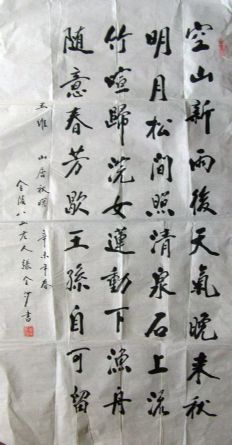 空山新雨後天氣晚来秋
明月松間照清泉石上流
竹喧歸浣女蓮動下漁舟
随意春芳歇王孫自可留
王維 山居秋暝 辛未年春
金陵八一老人張金